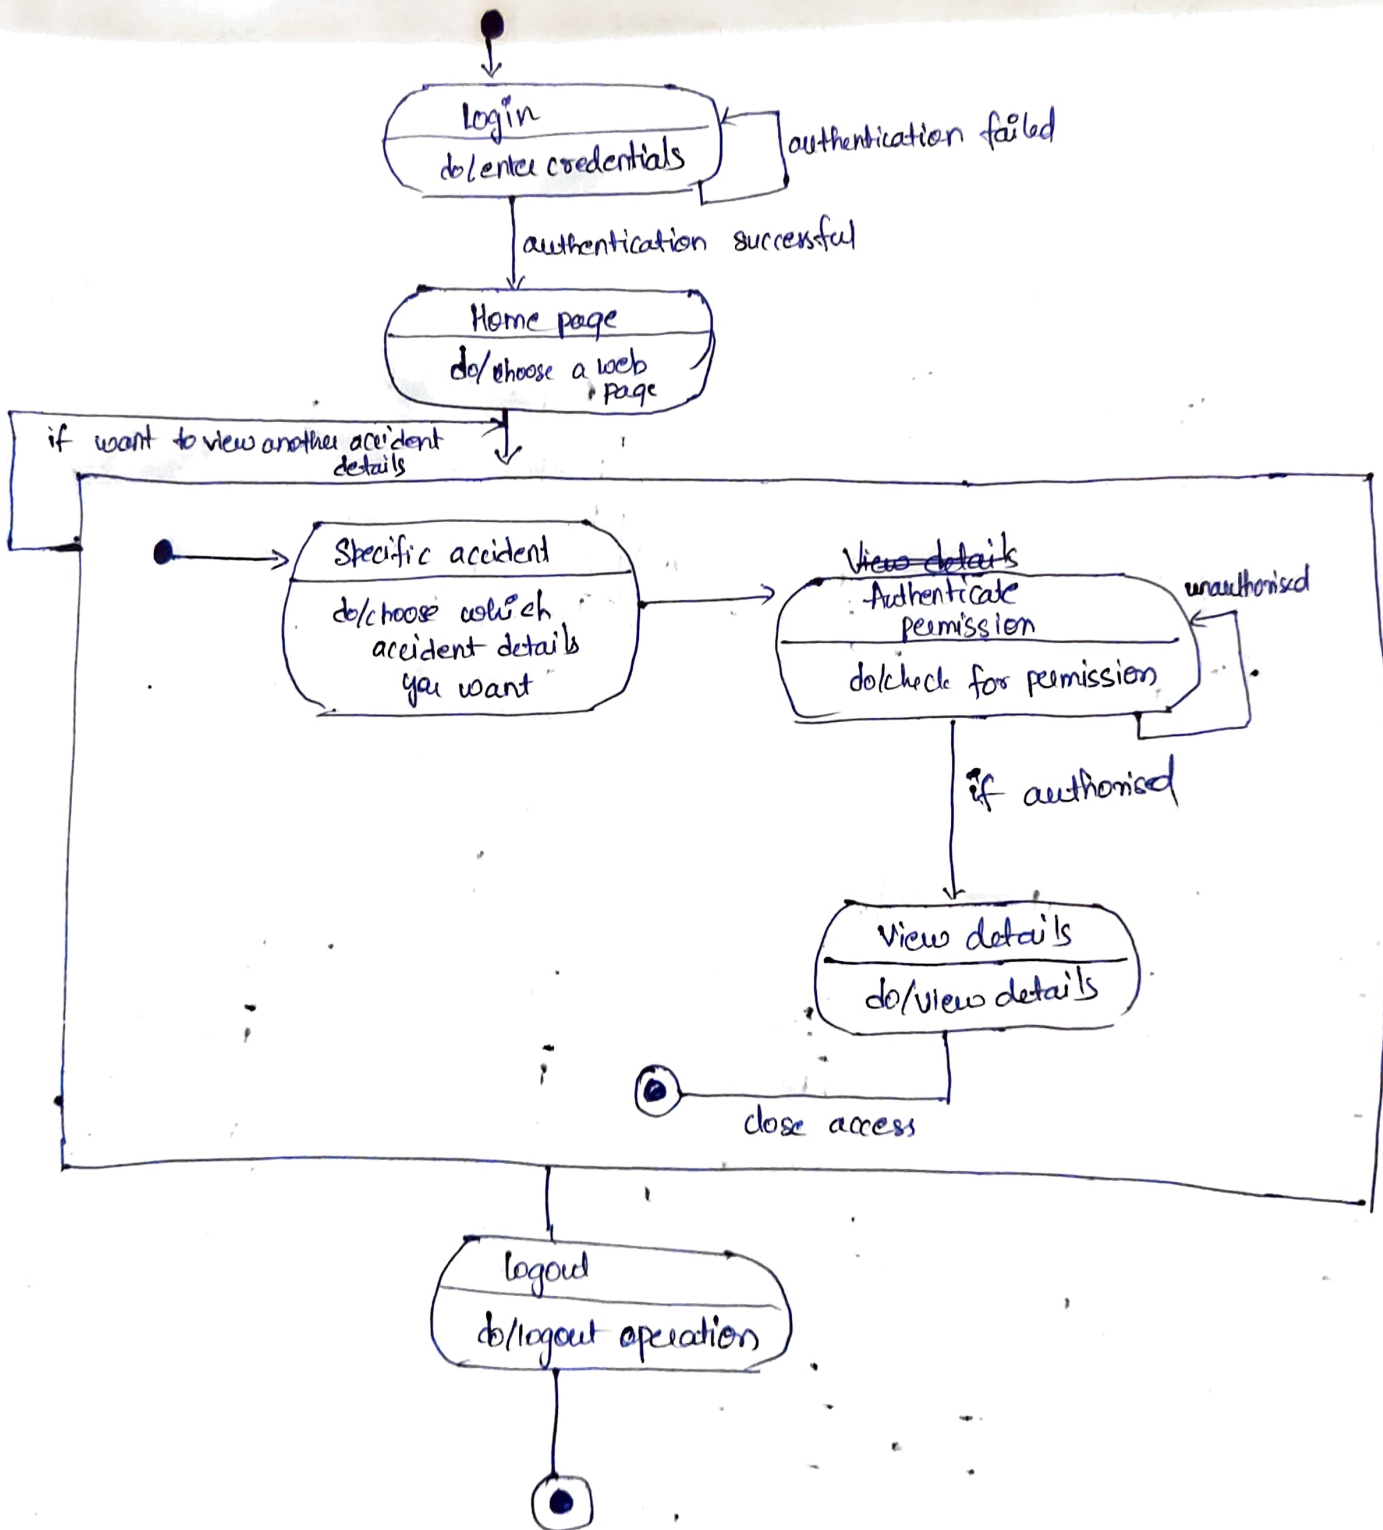 Login
do/enter credentials
authentication failed
authentication successful
Home page
do/choose a web
page
if want to view another accident
details
Specific accident
do/choose which
accident details
you want
View details
Authenticate
permission
do/check for permission
unauthorised
if authorised
View details
do/view details
close access
logout
do/logout operation